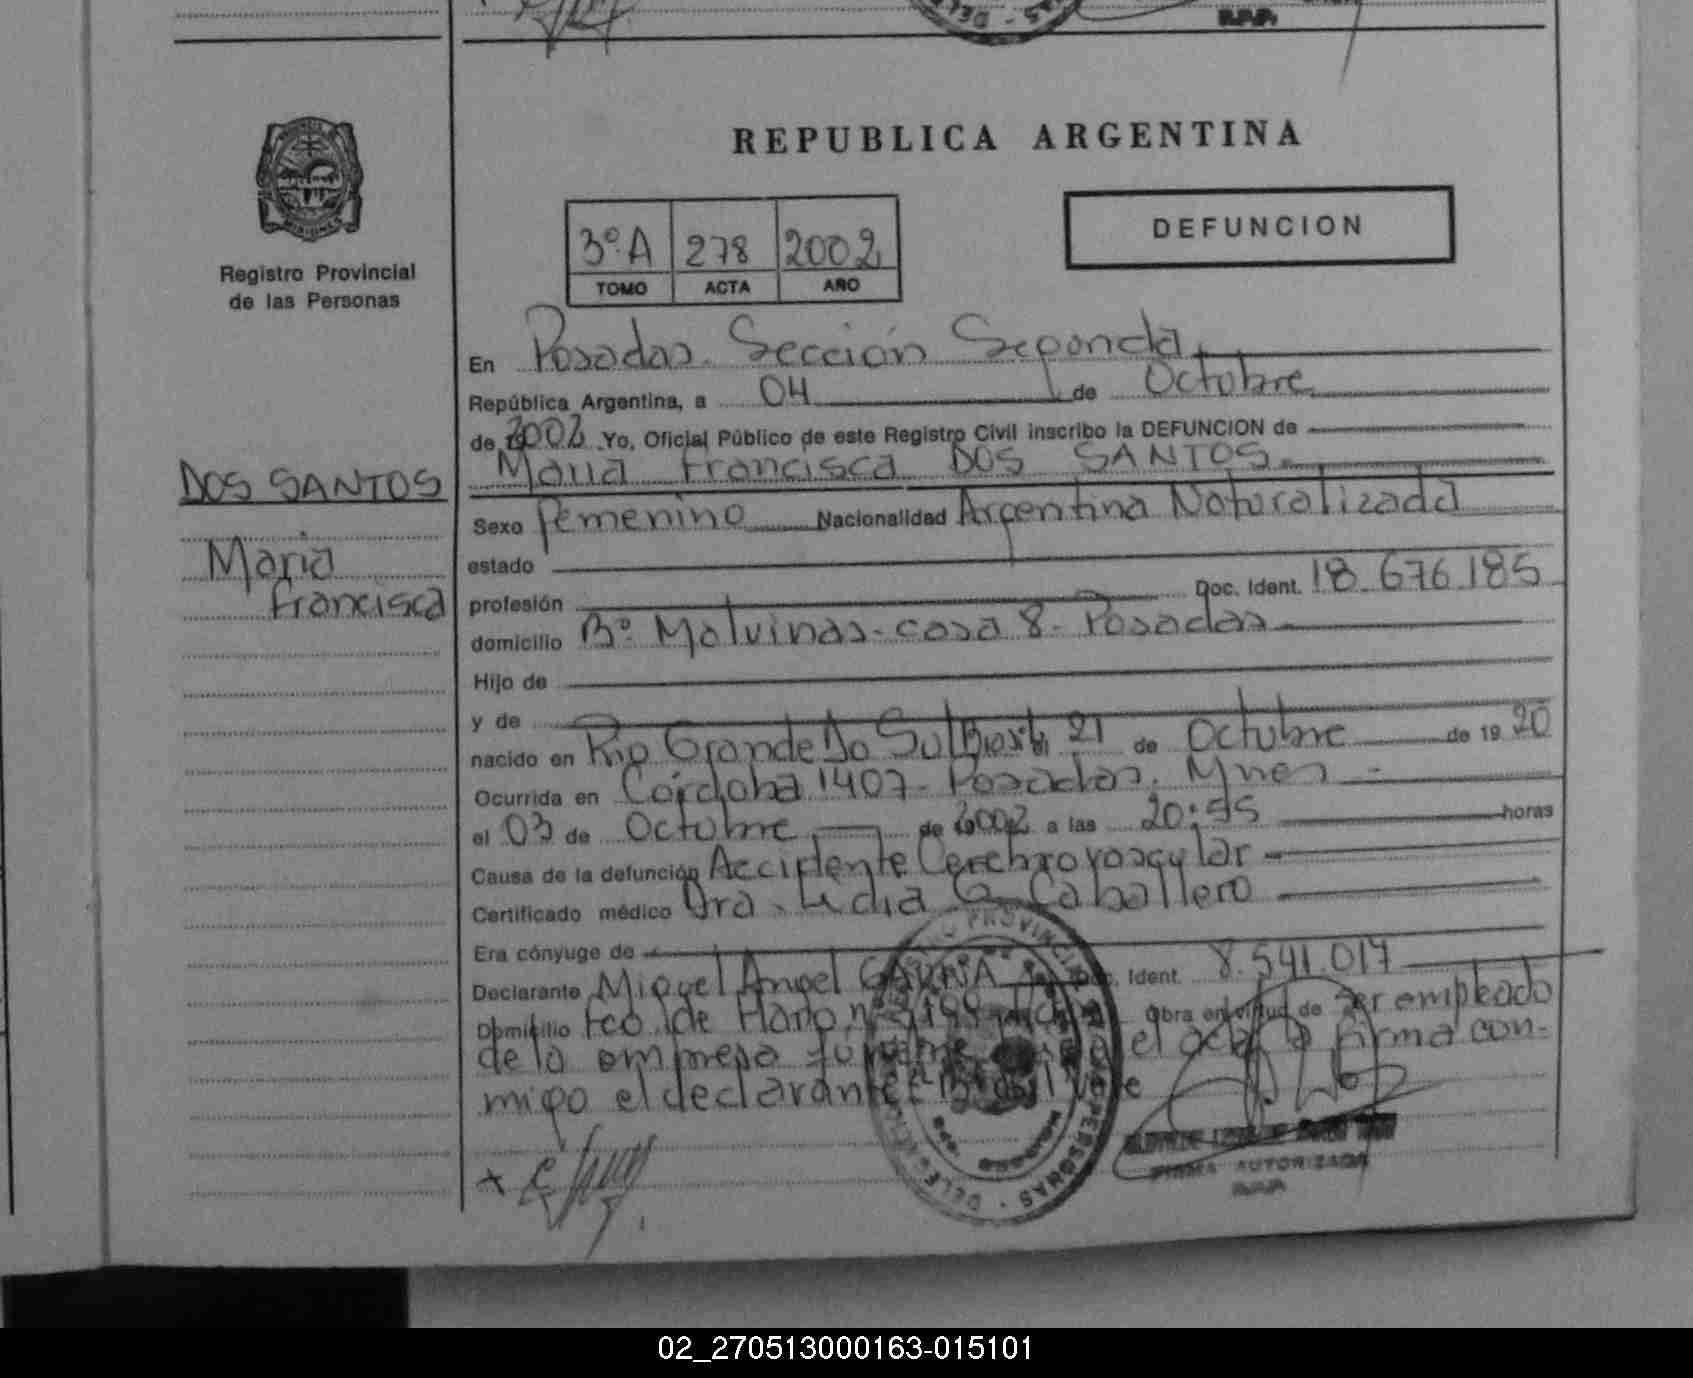 REPUBLICA ARGENTINA
DEFUNCION
Registro Provincial
de las Personas
3º A 278 2002
TOMO ACTA AÑO
En Posadas. Sección Segunda
República Argentina, a 04 de Octubre
de 2002 Yo, Oficial Público de este Registro Civil inscribo la DEFUNCION de
Maria Francisca DOS SANTOS
DOS SANTOS
Maria
Francisca
Sexo Femenino Nacionalidad Argentina Naturalizada
estado
profesión Doc. Ident. 18.676.185
domicilio Bº Malvinas - casa 8 - Posadas
Hijo de
y de
nacido en Rio Grande Do Sul Brasil, 21 de Octubre de 1920
Ocurrida en Córdoba 1407 - Posadas. Mnes -
el 03 de Octubre de 2002 a las 20:55 horas
Causa de la defunción Accidente Cerebrovascular
Certificado médico Dra. Lidia G. Caballero
Era cónyuge de
Declarante Miguel Angel Ident. 8.541.017
Domicilio Fco. de Haro nº Obra en virtud de ser empleado
de la empresa el acta la firma con-
migo el declarante
FIRMA AUTORIZADA
R.P.P.
02_270513000163-015101